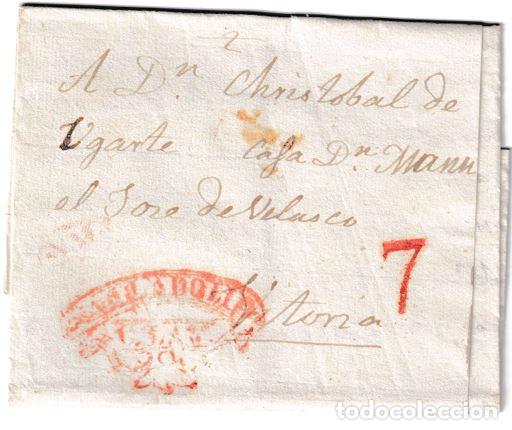 2
A Dn Christobal de
Ugarte Casa Dn Manu
el Jose de Velasco
7
Vitoria
todocoleccion
todocoleccion.net